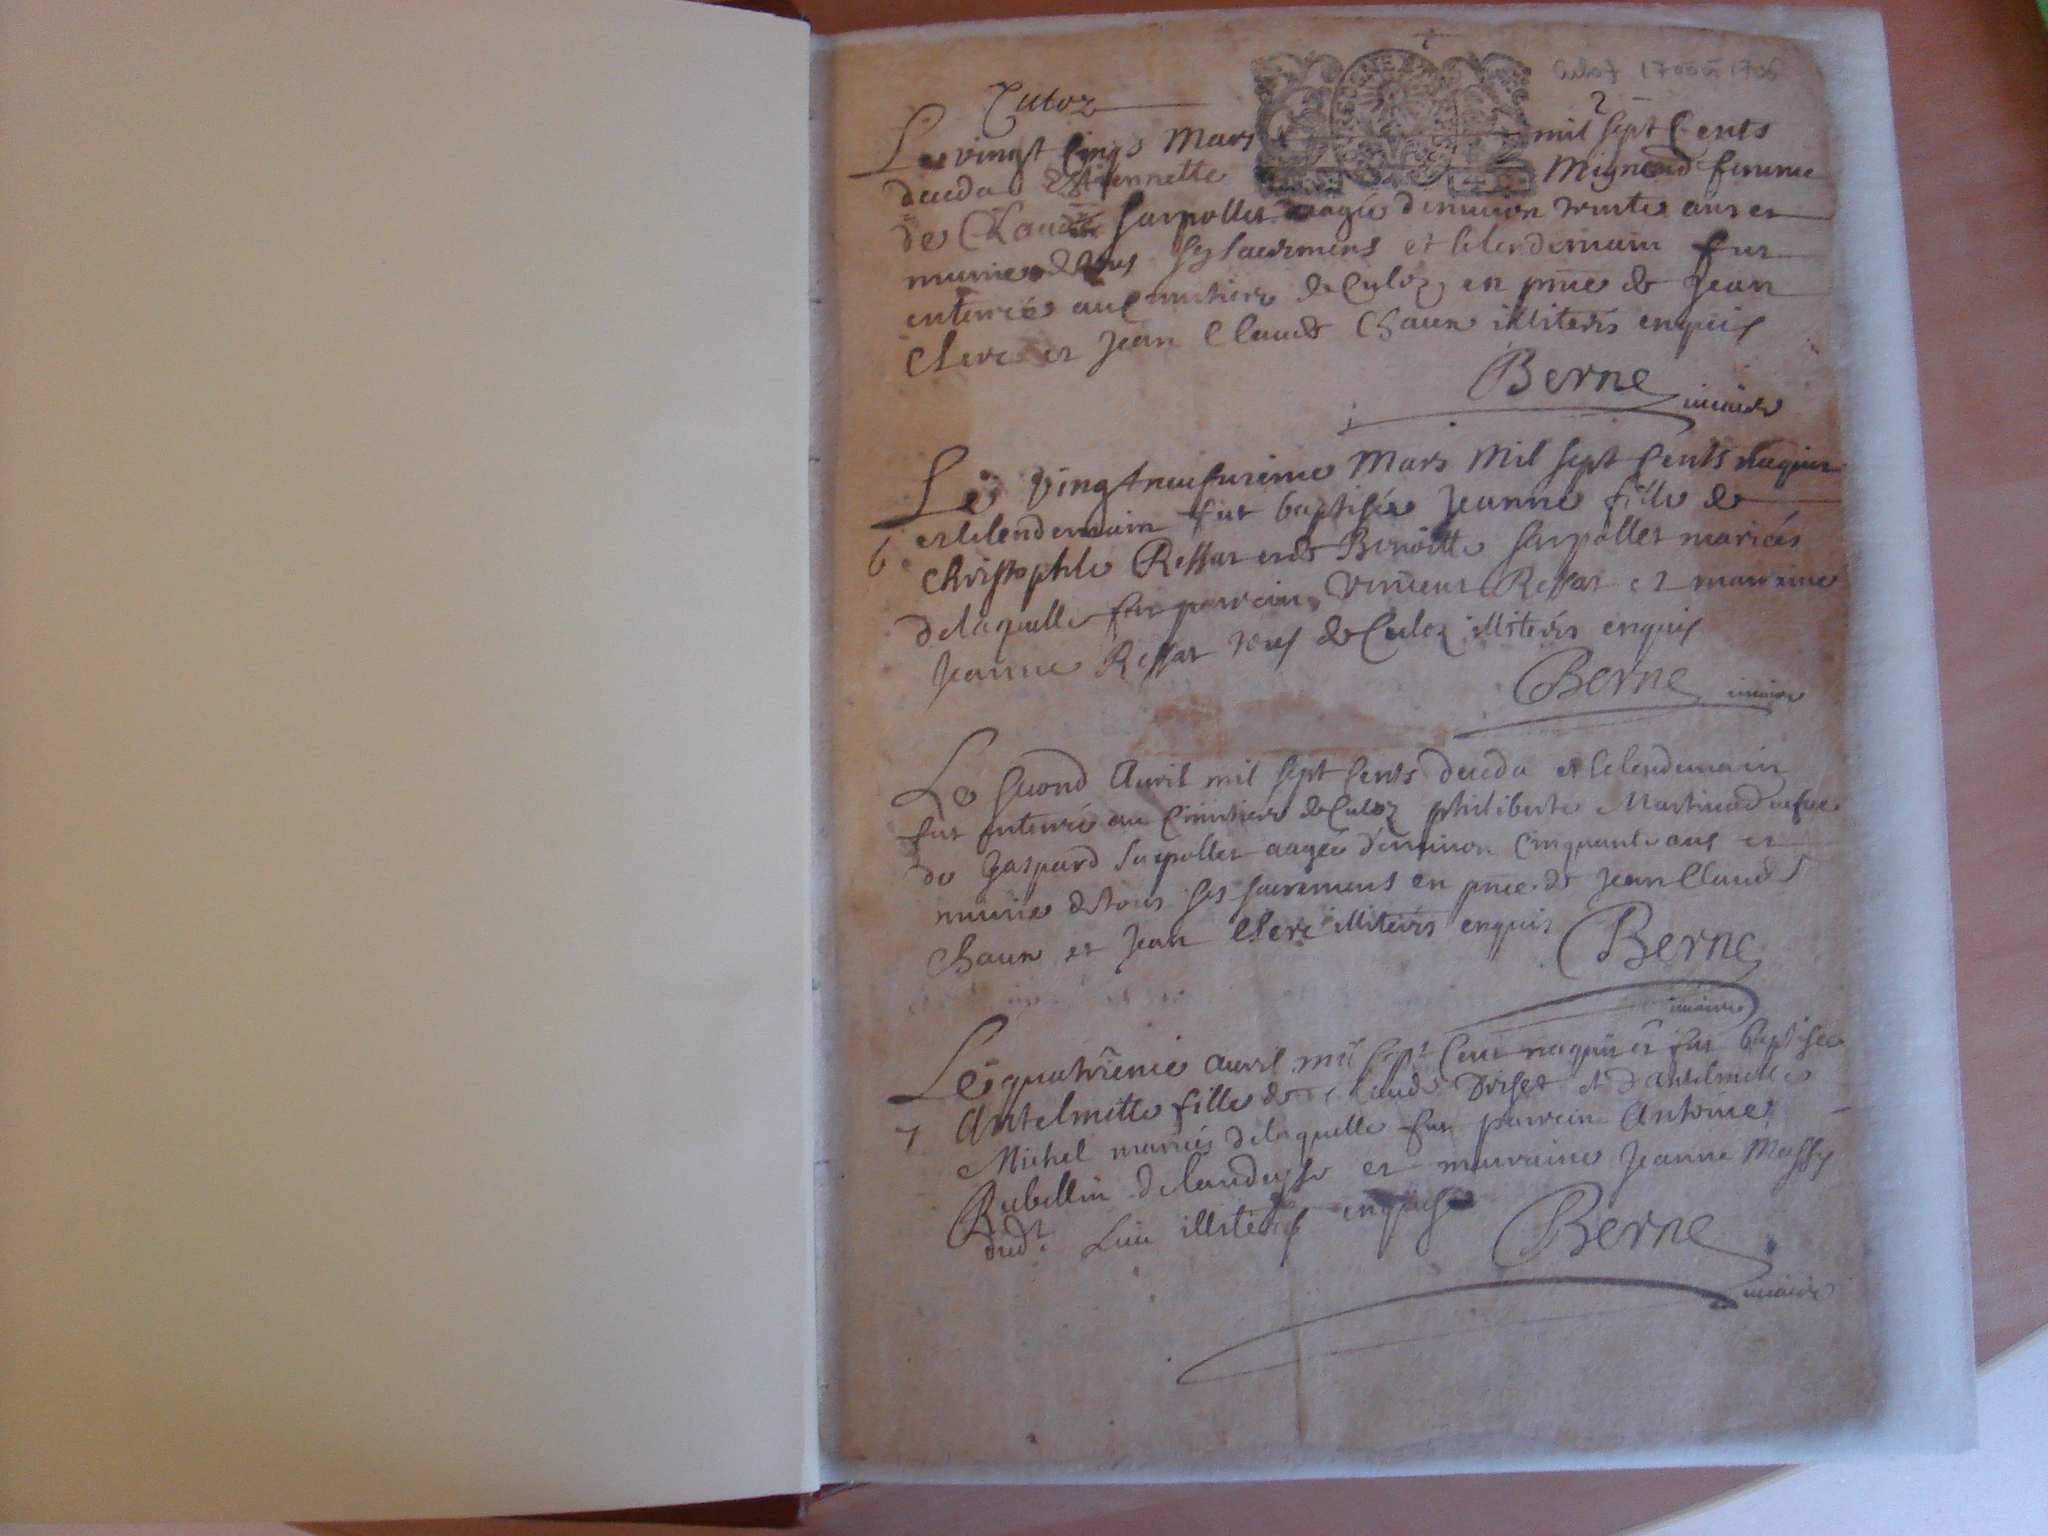 Culoz
Le vingt cinqs Mars mil sept Cents
deceda Estiennette Mignard femme
de Claude Sarpollet aagée d'environ trente ans et
munie de tous ses sacremens et le lendemain fut
enterrée au Cimitiere de Culoz en pnce de Jean
Clerc et Jean Claude Chaux illiterés enquis
Berne vicaire
Le vingt neufvieme Mars Mil sept Cents naquit
et le lendemain fut baptisée Jeanne fille de
6 Christophle Ressat et de Benoitte Sarpollet mariés
de laquelle fut parrain Vincent Ressat et marraine
Jeanne Ressat tous de Culoz illiterés enquis
Berne vicaire
Le second Avril mil sept Cents deceda et le lendemain
fut enterrée au Cimitiere de Culoz philiberte Martinod vefve
de Gaspard Sarpollet aagée d'environ Cinquante ans et
munie de tous ses sacremens en pnce de Jean Claude
Chaux et Jean Clerc illiterés enquis Berne
vicaire
Le quatrieme avril mil sept Cent naquit et fut baptisée
Antelmette fille de Claude et d'Antelmette
7 Michel mariés de laquelle fut parrain Antoine
Rubellin de et marraine Jeanne Massy
dud. Lieu illiterés enquis
Berne
vicaire